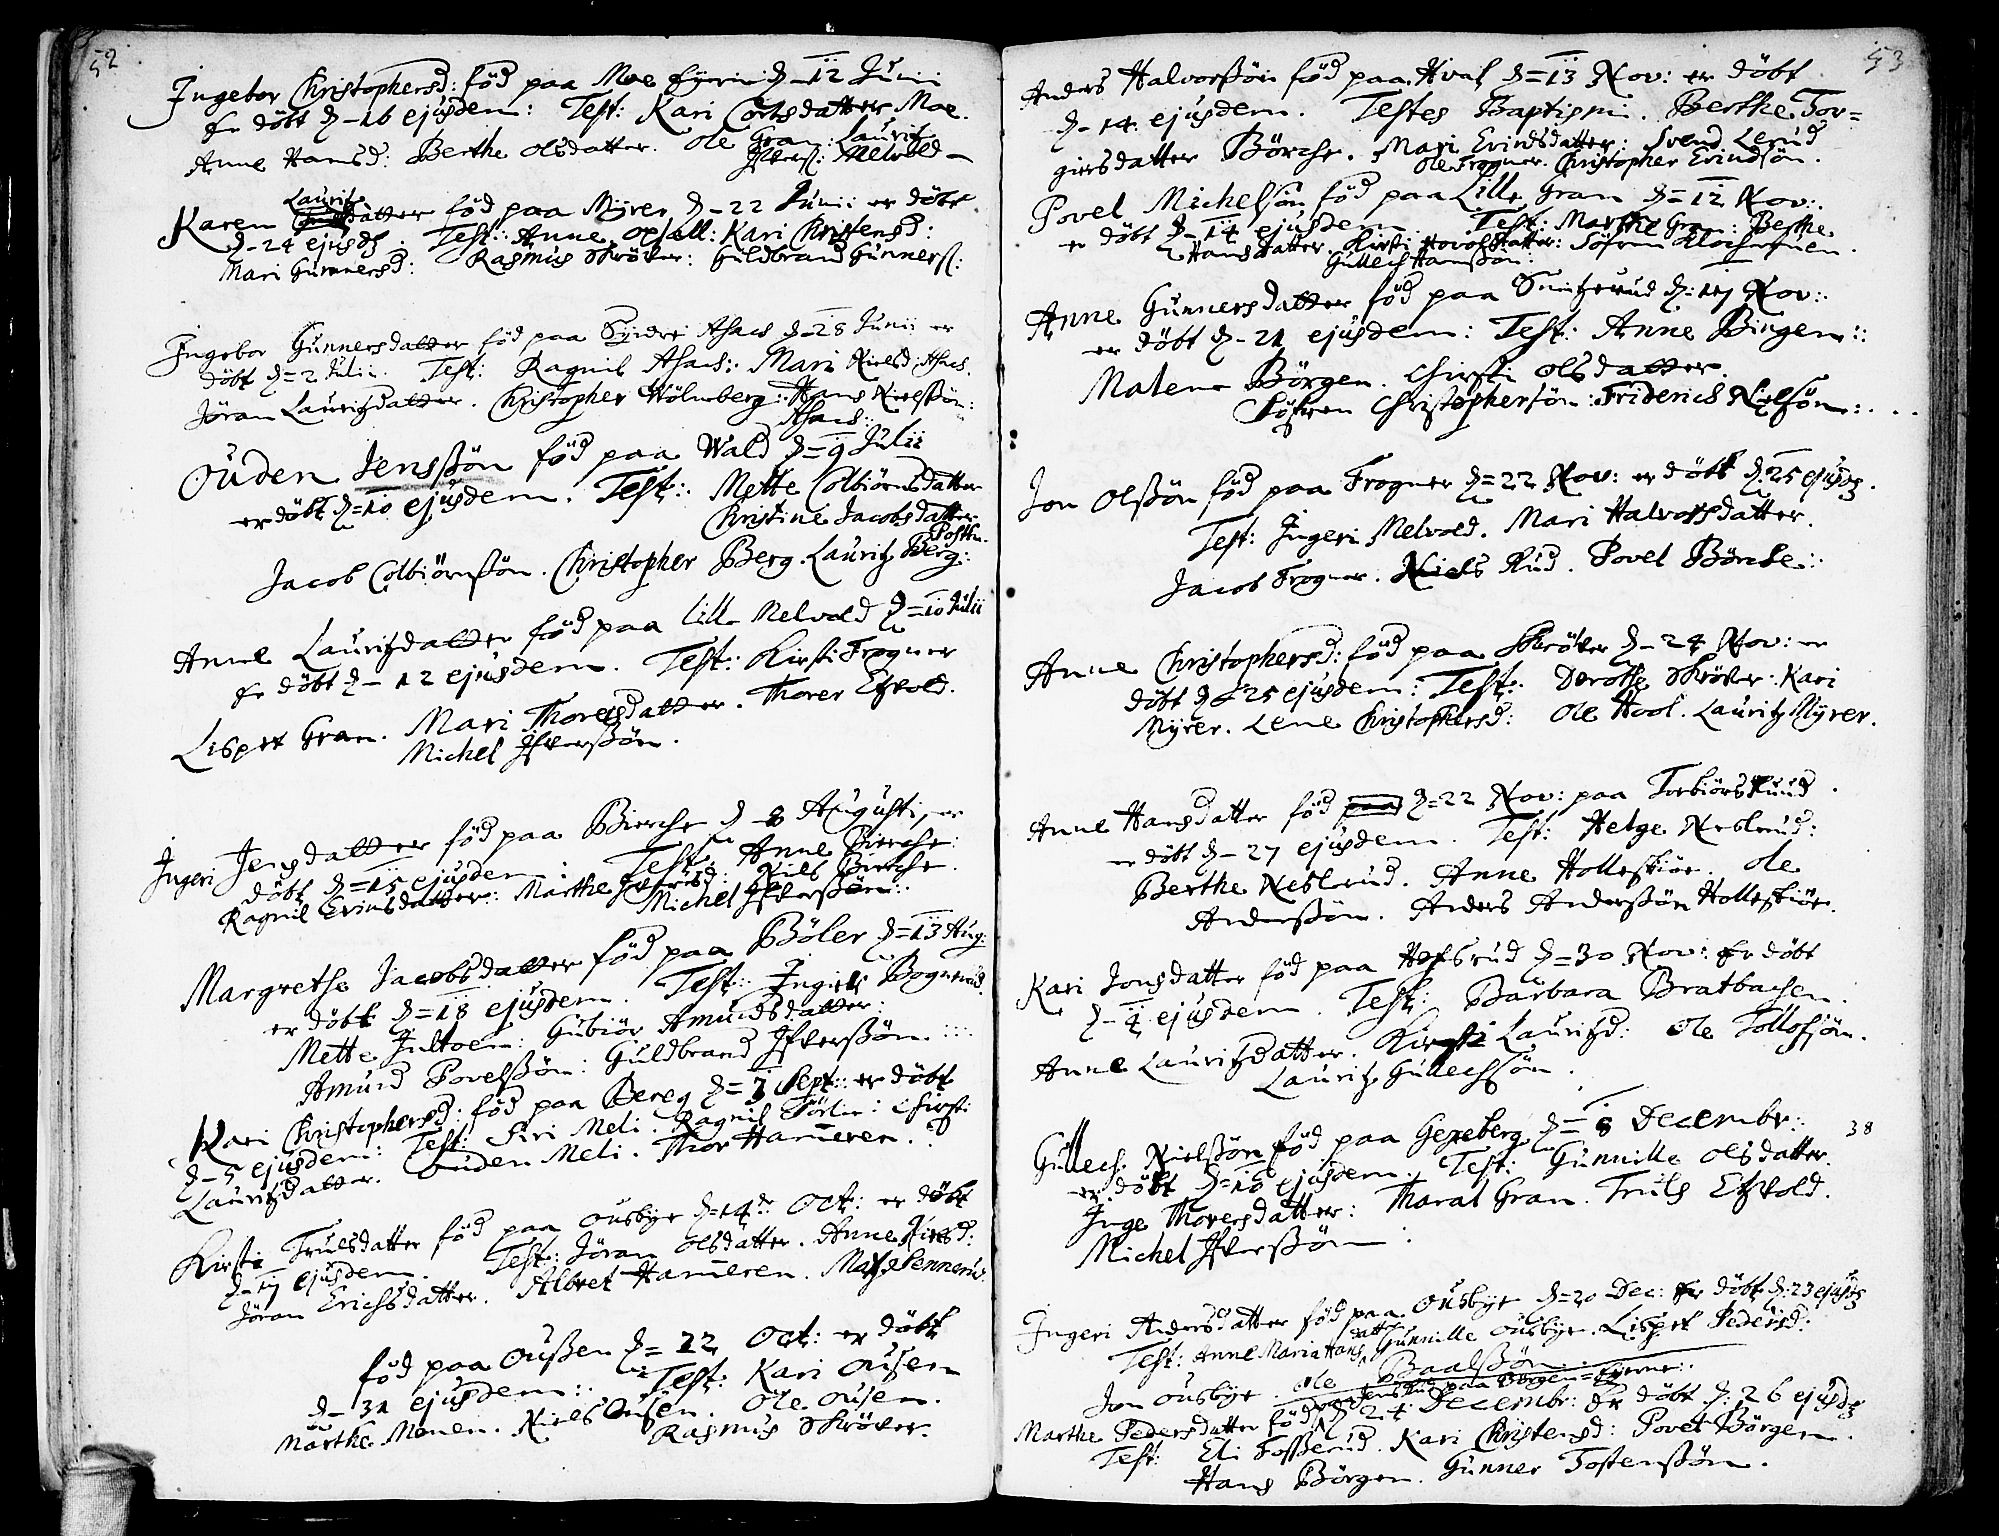 52.
Ingebor Christophersd: föd paa Moe Eyeren d=12 Junii
Er döbt d-16 ejusdem: Test: Kari Cortsdatter Moe.
Anne Hansd: Berthe Olsdatter. Ole Gran: Lauritz
Ifvers: Melvold-
Lauritz
Karen datter föd paa Myrer d-22 Junii er döbt
d-24 ejusdę. Test: Anne Opsall: Kari Christensd:
Mari Gunnersd: Rasmus Skröver: Guldbrand Gunners:
Ingebor Gunnersdatter föd paa Syndre Ahaes d-28 Junii er
döbt d=2 Julii. Test: Ragnil Ahaes: Mari Nielsd: Ahaes.
Jöran Lauritzdatter. Christopher Hölmberg: Hans Nielssön:
Ahaes:
Ouden Jensßön föd paa Wald d=9 Julii
er döbt d=10 ejusdem. Test: Mette Colbiörnsdatter
Christine Jacobsdatter
Jacob Colbiörnßön. Christopher Berg. Lauritz Berg:
Anne Lauritzdatter föd paa Lille Melvold d=10 Julii
Er döbt d-12 ejusdem. Test: Kirsti Frogner
Lispet Gran. Mari Thorersdatter. Thorer Etzvold.
Michel Ifverßön.
Ingeri Jensdatter föd paa Bierche d-8 Augusti, er
döbt d=15 ejusdem: Test: Anne Bierche:
Ragnil Evindsdatter: Marthe Niels Bierche.
Michel Ifverßön:
Margrethe Jacobsdatter föd paa Böler d=13 Aug:
er döbt d=18 ejusdem. Test: Ingieb Bognerud.
Mette Jultoen: Gubiör Amundsdatter:
Amund Povelßön: Guldbrand Ifverßön.:::
Kari Christophersd: föd paa Bereg d=3 Sept: er döbt
d-5 ejusdem: Test: Siri Meli. Ragnil Törlie: Chirsti
Lauritzdatter. Ouden Meli. Thor Hameren.
Kirsti Trulsdatter föd paa Ousbye d=14de Oct: er döbt
d-17 ejusdem. Test: Jöran Olsdatter. Anne Nielsd:
Jöran Erichsdatter. Albret Hameren. Matz Pennerud.
föd paa Oußen d=22 Oct: er döbt
d-31 ejusdem: Test: Kari Ousen
Marthe Monen. Niels Ousen. Ole Ousen.
Rasmus Skröver.
53.
Anders Halvorßön föd paa Hval d=13 Nov: er döbt
d-14 ejusdem. Testes Baptismi. Berthe Tor=
giersdatter Börche. Mari Evindsdatter: Svend Lerud
Ole Frogner. Christopher Evindsön.
Povel Michelsön föd paa Lille Gran d=12 Nov:
er döbt d-14 ejusdem. Test: Marthe Gran: Berthe
Hansdatter. Kirsti Hovolsdatter: Söfren Klochersuen.
Gullech Hansßön:
Anne Gunnersdatter föd paa d:17 Nov:
er döbt d-21 ejusdem: Test: Anne Bingen::
Malene Börgen. Chirsti Olsdatter.
Söfren Christophersön: Friderich Nielsön:...
Jon Olsßön föd paa Frogner d=22 Nov: er döbt d:25 ejusdę.
Test: Ingeri Melvold. Mari Halvorsdatter.
Jacob Frogner. Niels Rud. Povel Börche:
Anne Christophersd: föd paa Skröver d-24 Nov: er
döbt d=25 ejusdem: Test: Dorothe Skröver: Kari
Myrer. Lene Christophersd: Ole Hool. Lauritz Myrer.
Anne Hansdatter föd paa d=22 Nov: paa Torbiörsruud.
er döbt d-27 ejusdem. Test: Helge Neslerud:
Berthe Neslerud. Anne Holleskiör. Ole
Anderßön. Anders Anderßön Holleskiör.
Kari Jonsdatter föd paa Hofsrud d=30 Nov: Er döbt
d-4 ejusdem. Test: Barbara Bratbachen.
Anne Lauritzdatter. Kirsti Lauritzd: Ole Tollofsön.
Lauritz Gullechsön.
Gullech Nielßön föd paa Gexeberg d=8 Decembr:
38
er döbt d=10 ejusdem. Test: Gunnille Olsdatter.
Inge Thorersdatter: Tharal Gran. Truls Etzvold.
Michel Ifverßön.
Ingeri Andersdatter föd paa Ousbye d=20 Dec: Er döbt d:23 ejusdę
Test: Anne Maria Hansdatter Gunnille Ousbye. Lispet Pedersd:
Jon Ousbye. Ole Baalßön.
paa Börgen Eyerne:
Marthe Pedersdatter föd d 24 Decembr: Er döbt d: 26 ejusdę
Test: Eli Foßerud. Kari Christensd: Povel Börgen.
Hans Börgen. Gunner Tostenßön.